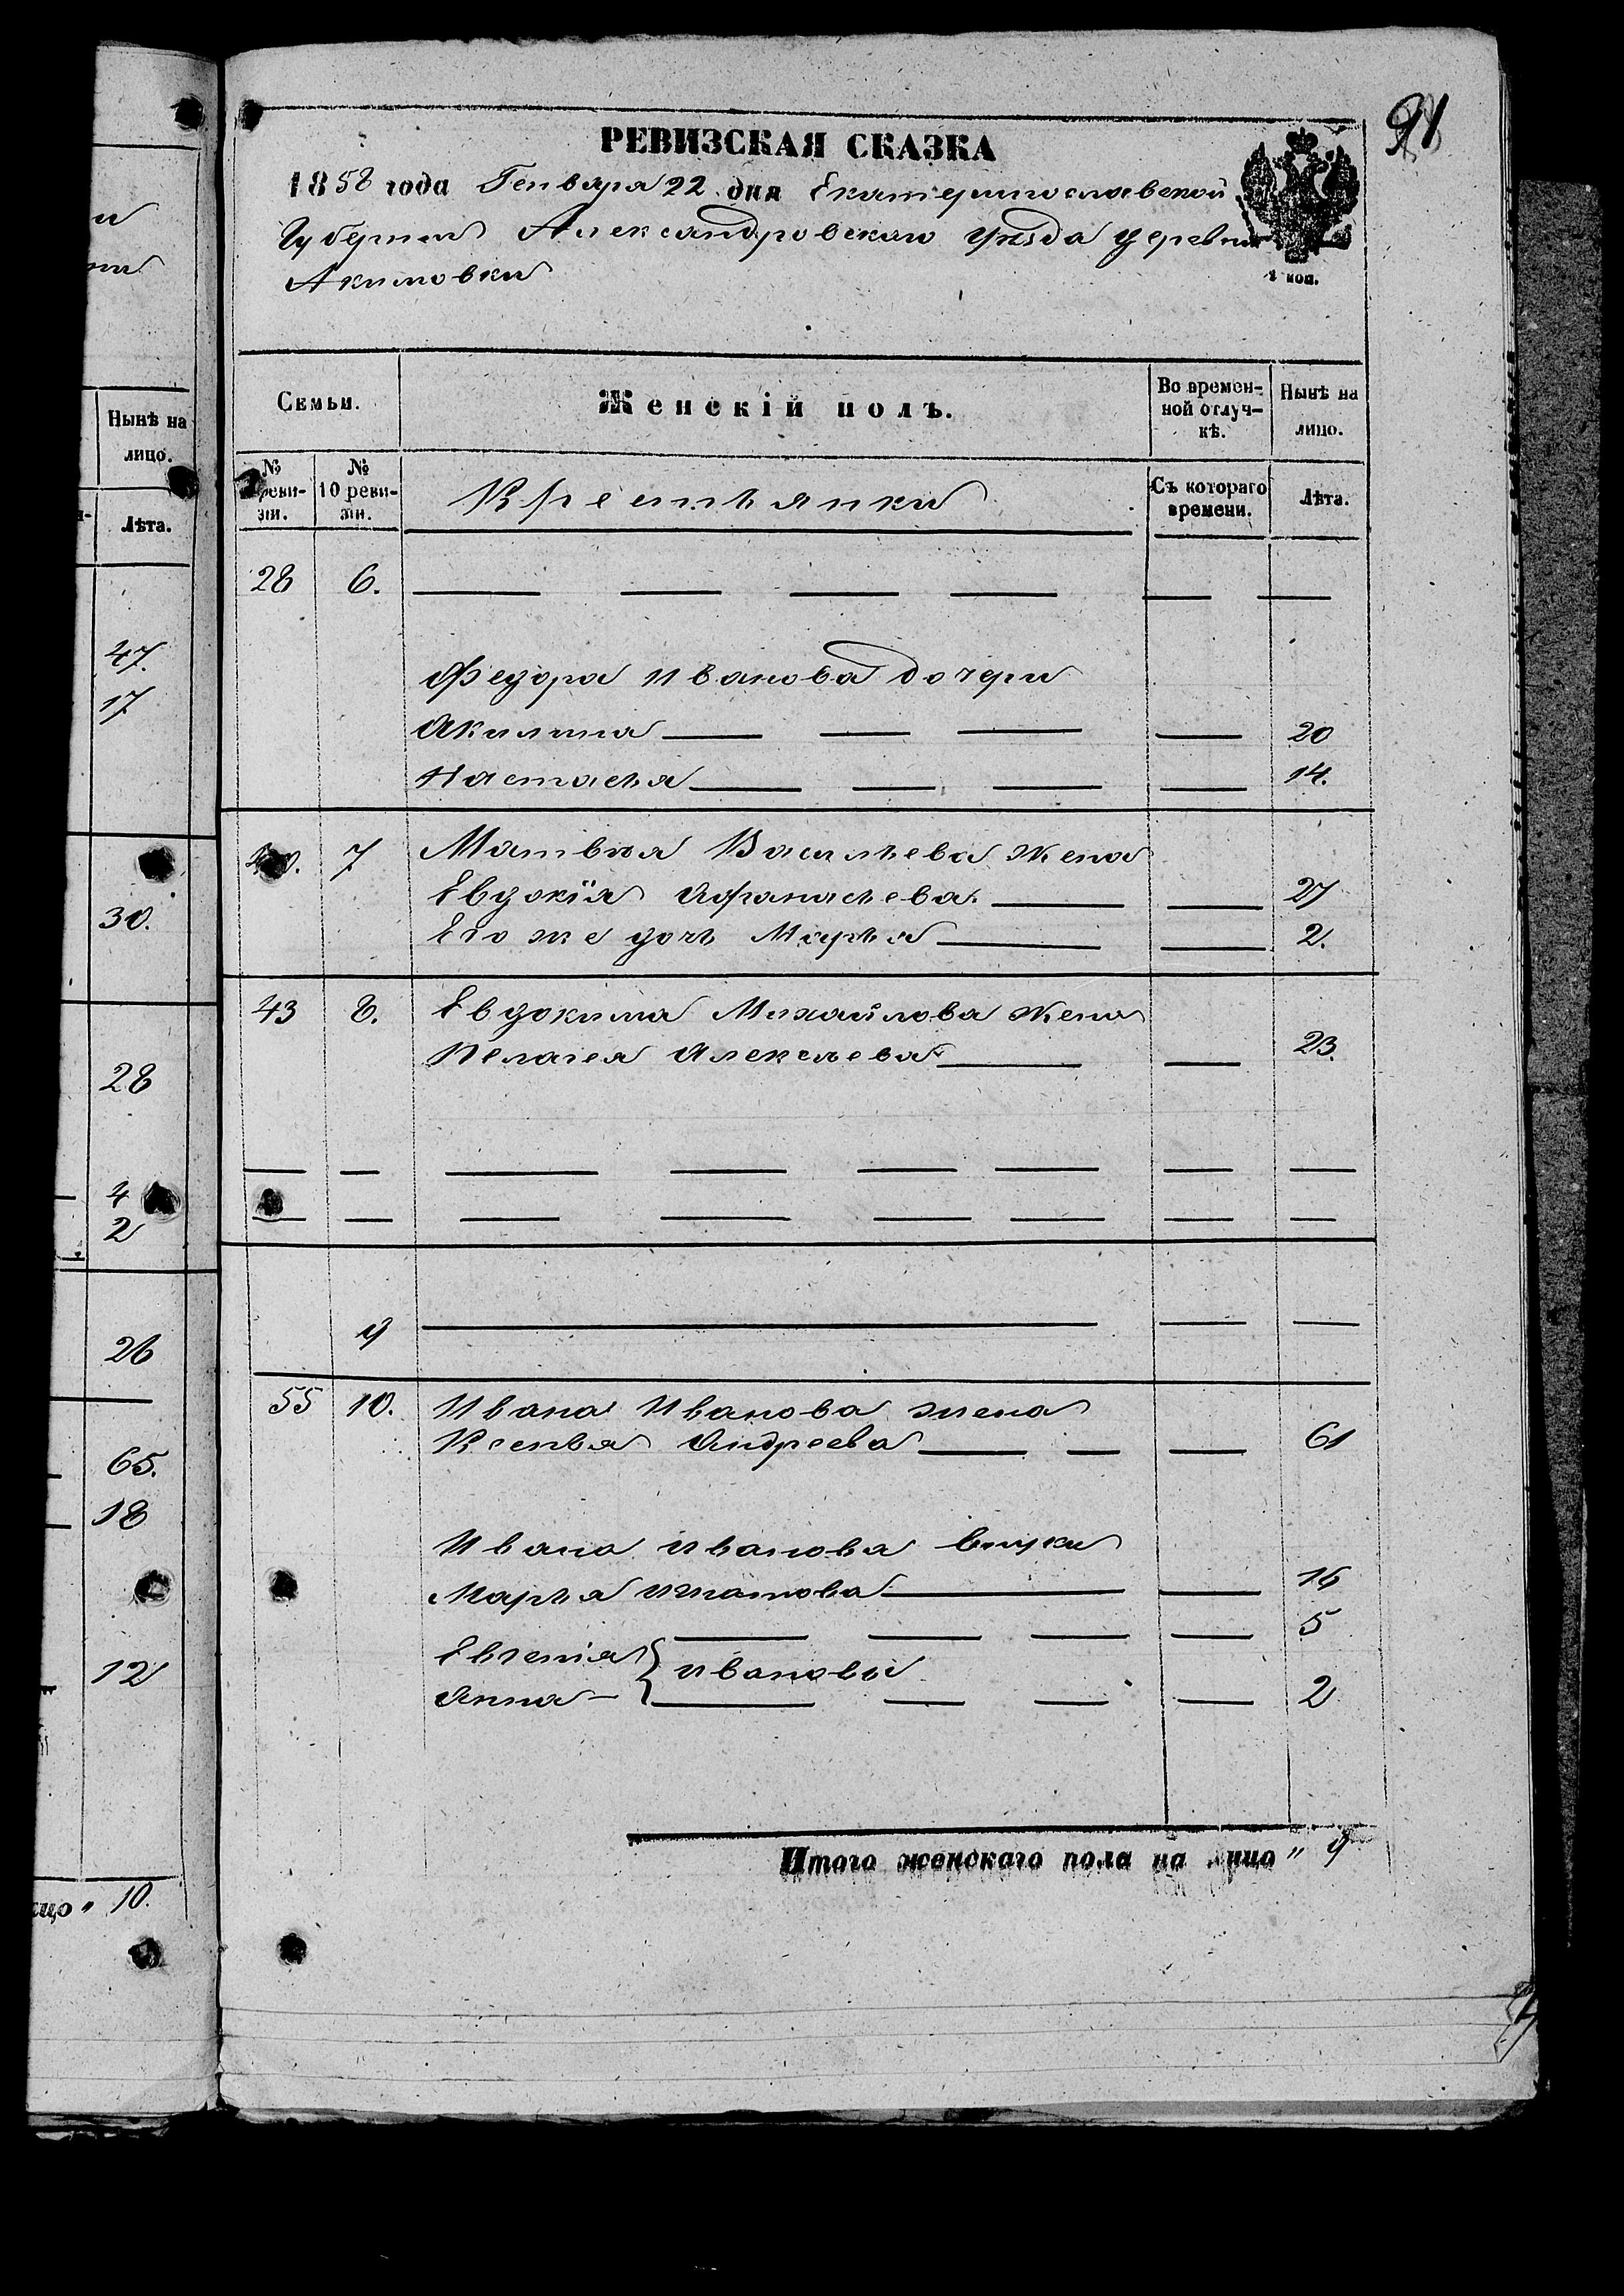 91
РЕВИЗСКАЯ СКАЗКА
1858 года Генваря 22 дня Екатеринославской
Губернии Александровскаго уѣзда деревни
Акимовки
1 коп.
Семьи. Женскій полъ. Во времен-ной отлуч-кѣ. Нынѣ на лицо.
№ реви-зіи. № 10 реви-зіи. Крестьянки Съ котораго времени. Лѣта.
28 6.
Федора Иванова дочери
Акилина 20
Настасья 14.
7 Матвѣя Васильева жена
Евдокія Афанасьева 27
Его же дочь Марья 2.
43 8. Евдокима Михайлова жена
Пелагея Алексѣева 23.
9
55 10. Ивана Иванова жена
Ксенья Андреева 61
Ивана Иванова внуки
Марья Игнатова 16
5
Евгенія } Ивановы
Анна 2
Итого женскаго пола на лицо " 9
Нынѣ на
лицо.
Лѣта.
47.
17
30.
28
4
2
26
65.
18
12
ицо " 10.